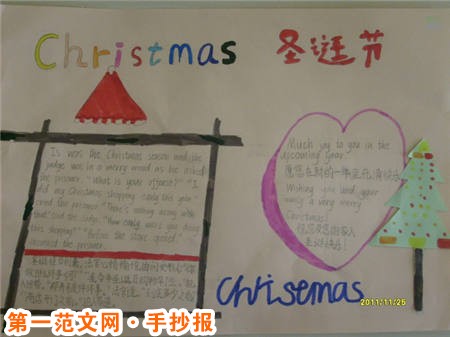 Christmas 圣诞节
Is was the Christmas season and the
judge was in a merry mood as he asked
the prisoner, "What is your offense?" "I
did my Christmas shopping early this year"
cried the prisoner "There's nothing wrong with
that" said the judge. "How early were you doing
this shopping?" "Before the store opened"
answered the prisoner.
Much joy to you in the
upcoming year.
愿您在新的一年充满快乐
Wishing you and your
family a very merry
Christmas!
祝您及您的家人
圣诞快乐!
Chrisemas
2011/11/25
第一范文网·手抄报